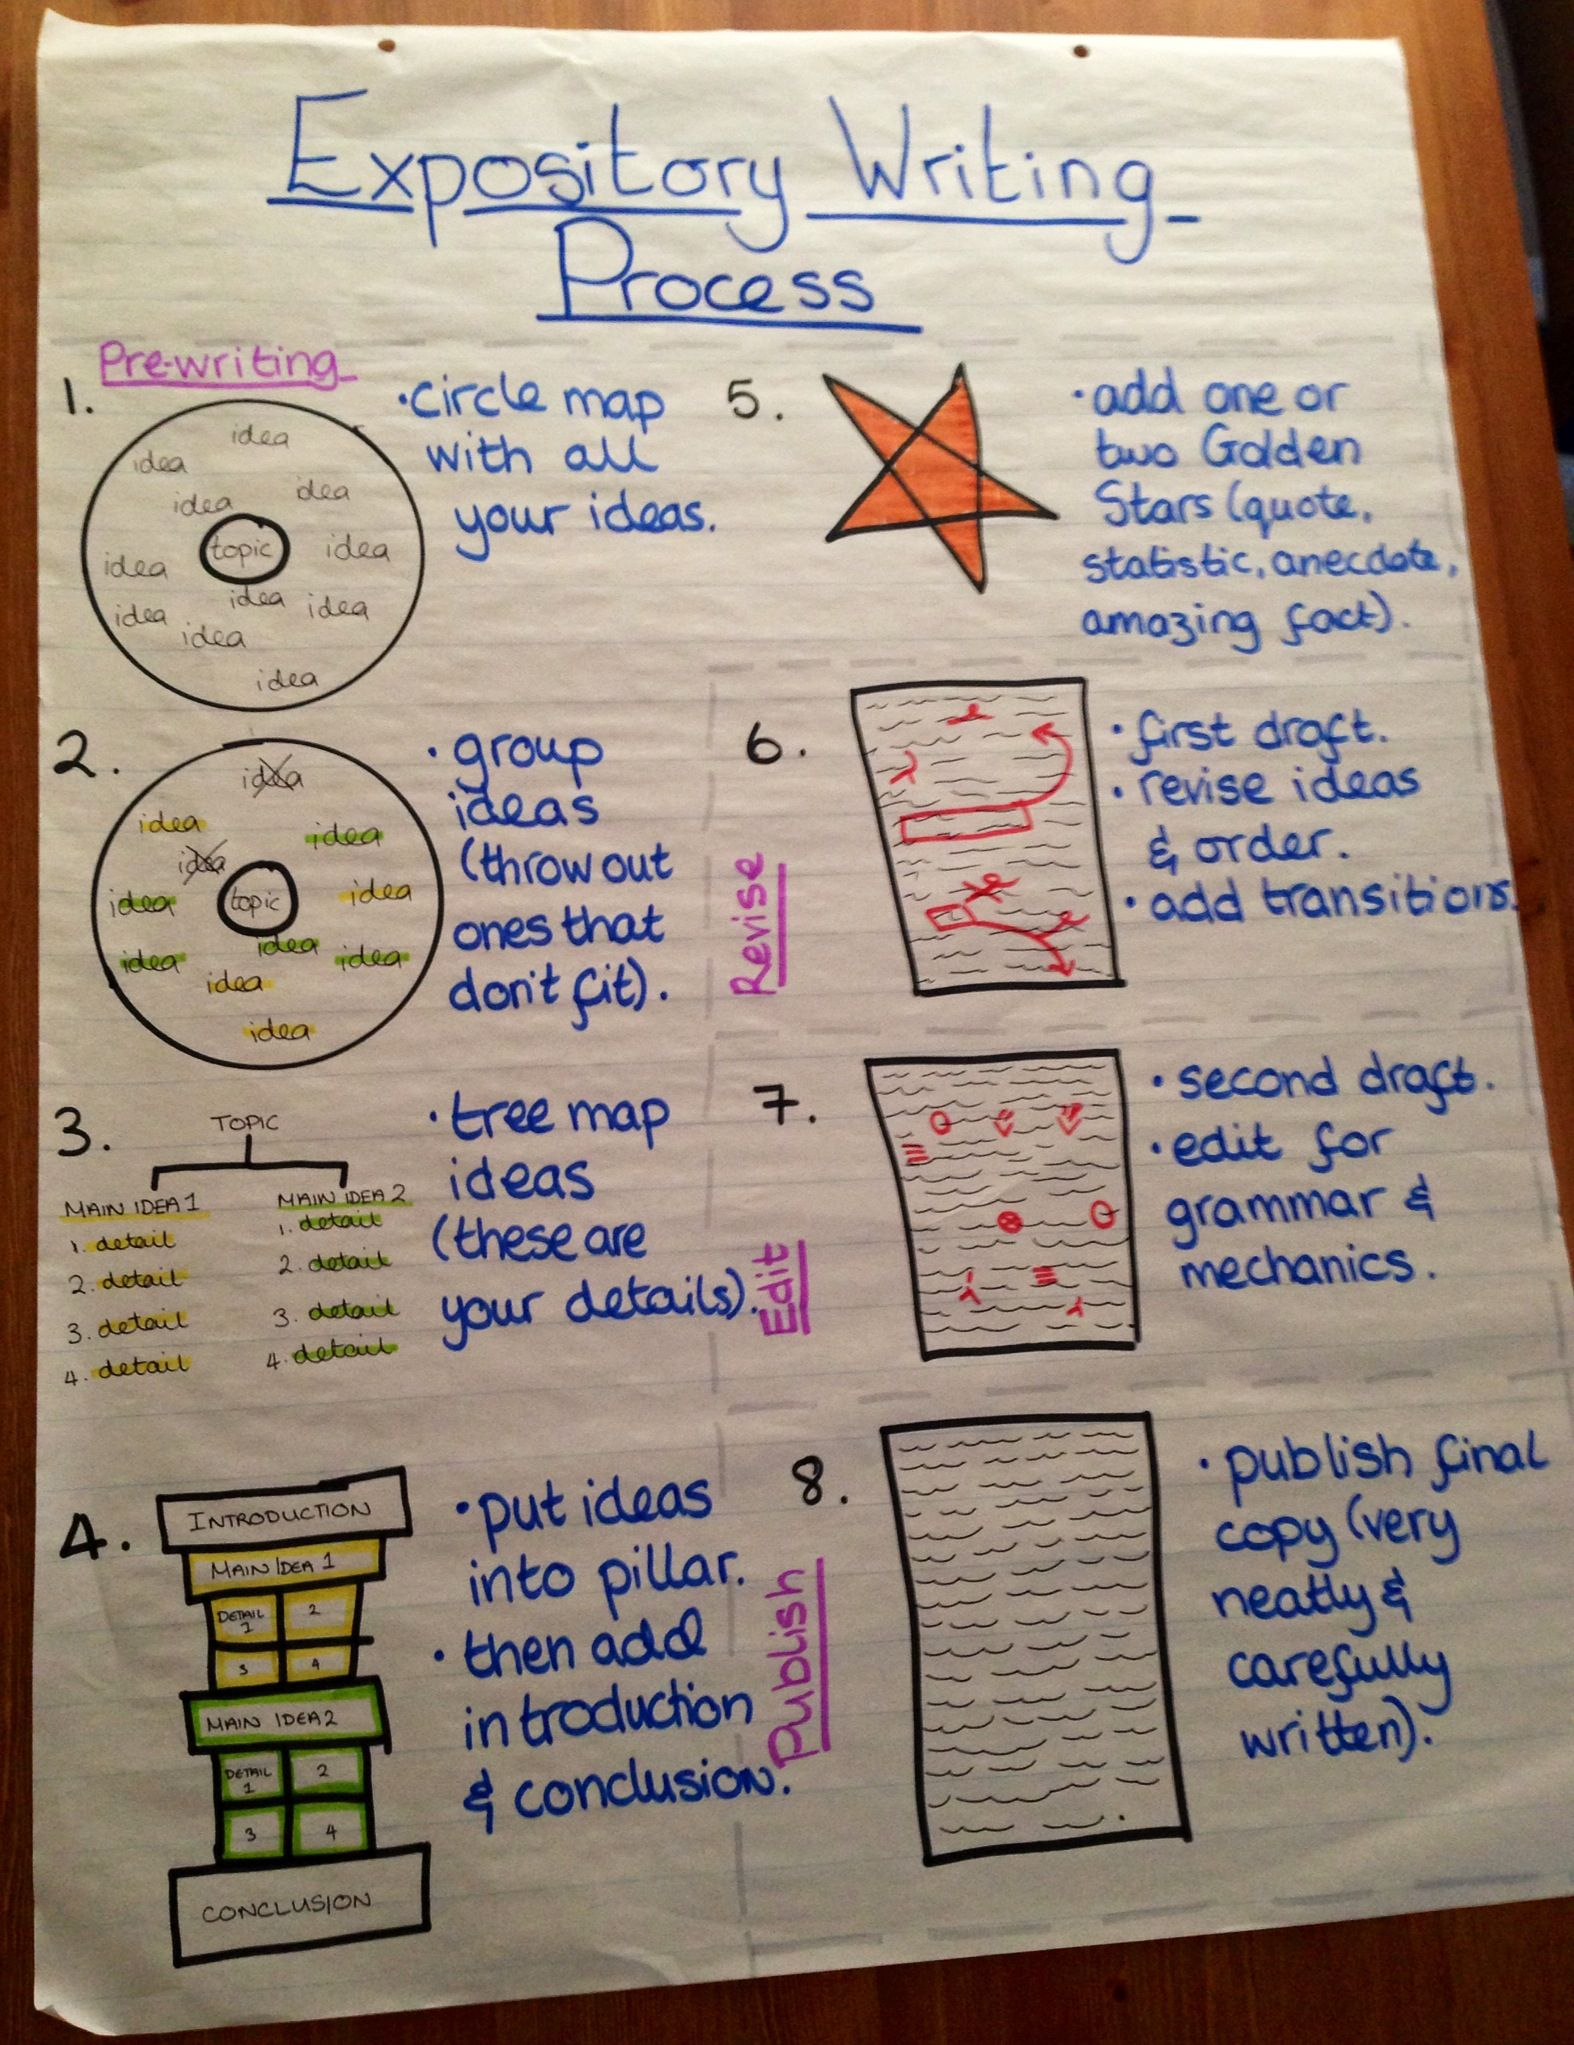 Expository Writing
Process
Pre-writing
1.
idea
idea
idea
idea
topic
idea
idea
idea
idea
idea
idea
idea
·circle map
with all
your ideas.
2.
idea
idea
idea
idea
topic
idea
idea
idea
idea
idea
idea
idea
·group
ideas
(throw out
ones that
don't fit).
3.
TOPIC
MAIN IDEA 1
1. detail
2. detail
3. detail
4. detail
MAIN IDEA 2
1. detail
2. detail
3. detail
4. detail
·tree map
ideas
(these are
your details).
4.
INTRODUCTION
MAIN IDEA 1
DETAIL
1
2
3
4
MAIN IDEA 2
DETAIL
1
2
3
4
CONCLUSION
·put ideas
into pillar.
·then add
introduction
& conclusion.
5.
·add one or
two Golden
Stars (quote,
statistic, anecdote,
amazing fact).
Revise
6.
·first draft.
·revise ideas
& order.
·add transitions.
Edit
7.
·second draft.
·edit for
grammar &
mechanics.
Publish
8.
·publish final
copy (very
neatly &
carefully
written).